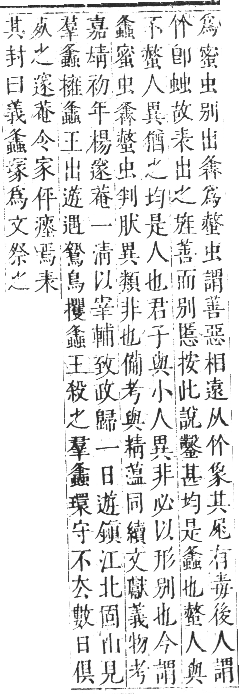 爲蜜虫别出螽爲螫虫謂善惡相遠从夂象其尾有毒後人謂
夂卽螝故表出之旌善而别慝按此說鑿甚均是螽也螫人與
不螫人異猶之均是人也君子與小人異非必以形别也今謂
螽蜜虫螽螫虫判肰異類非也備考與精蕴同續文獻義物考
嘉靖初年楊邃菴一清以宰輔致政歸一日遊鎭江北固山見
羣螽擁螽王出遊遇鴛鳥攫螽王殺之羣螽環守不厺數日俱
死之邃菴令家伻瘞焉表
其封曰義螽冢爲文祭之